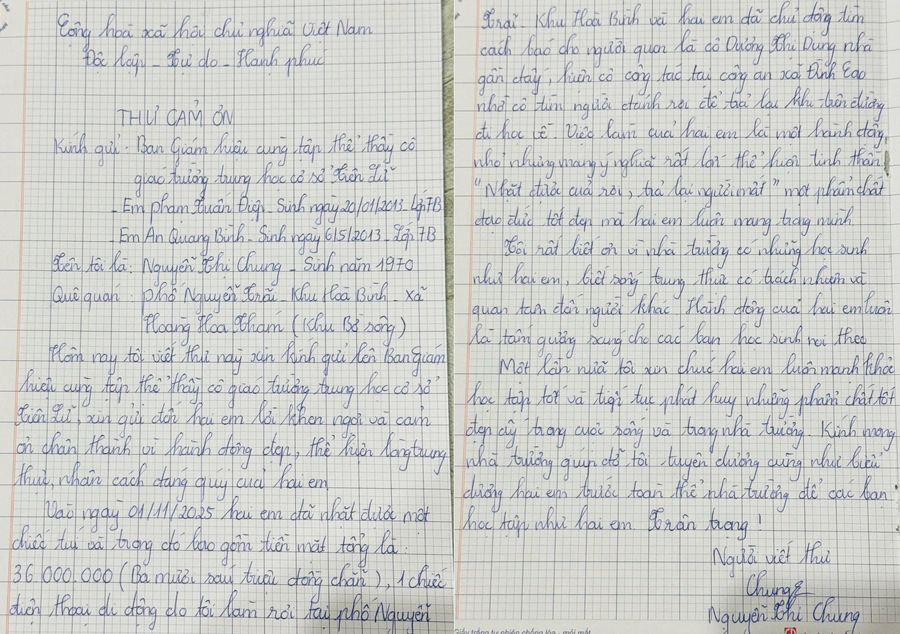 Cộng hoà xã hội chủ nghĩa Việt Nam
Độc lập - Tự do - Hạnh phúc
THƯ CẢM ƠN
Kính gửi: Ban Giám hiệu cùng tập thể thầy cô
giáo trường trung học cơ sở Tiên Lữ
- Em Phạm Xuân Diệp - Sinh ngày 20/01/2013 - Lớp 7B
- Em An Quang Bình - Sinh ngày 6/5/2013 - Lớp 7B
Tên tôi là: Nguyễn Thị Chung - Sinh năm 1970
Quê quán: Phố Nguyễn Trãi - Khu Hoà Bình - xã
Hoàng Hoa Thám (Khu Bờ sông)
Hôm nay tôi viết thư này xin kính gửi lên Ban Giám
hiệu cùng tập thể thầy cô giáo trường trung học cơ sở
Tiên Lữ, xin gửi đến hai em lời khen ngợi và cảm
ơn chân thành vì hành động đẹp, thể hiện lòng trung
thực, nhân cách đáng quý của hai em.
Vào ngày 01/11/2025 hai em đã nhặt được một
chiếc túi và trong đó bao gồm tiền mặt tổng là:
36.000.000 (Ba mươi sáu triệu đồng chẵn), 1 chiếc
điện thoại di động do tôi làm rơi tại phố Nguyễn
Trãi - Khu Hoà Bình và hai em đã chủ động tìm
cách báo cho người quen là cô Dương Thị Dung nhà
gần đấy, hiện cô công tác tại công an xã Đình Cao
nhờ cô tìm người đánh rơi để trả lại khi trên đường
đi học về. Việc làm của hai em là một hành động
nhỏ nhưng mang ý nghĩa rất lớn thể hiện tinh thần
"Nhặt được của rơi, trả lại người mất" một phẩm chất
đạo đức tốt đẹp mà hai em luôn mang trong mình
Tôi rất biết ơn vì nhà trường có những học sinh
như hai em, biết sống trung thực có trách nhiệm và
quan tâm đến người khác. Hành động của hai em luôn
là tấm gương sáng cho các bạn học sinh noi theo
Một lần nữa tôi xin chúc hai em luôn mạnh khoẻ
học tập tốt và tiếp tục phát huy những phẩm chất tốt
đẹp ấy trong cuộc sống và trong nhà trường. Kính mong
nhà trường giúp đỡ tôi tuyên dương cũng như biểu
dương hai em trước toàn thể nhà trường để các bạn
học tập như hai em. Trân trọng!
Người viết thư
Chung
Nguyễn Thị Chung